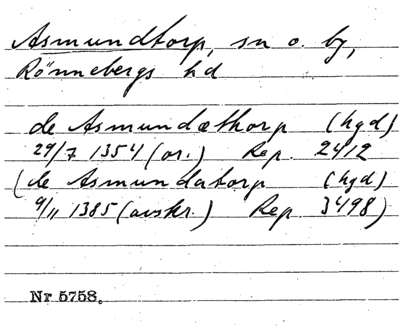 Asmundtorp, sn o. by,
Rönnebergs hd
de Asmundæthorp (hgd)
29/7 1354 (or.) Rep. 2412
(de Asmundatorp (hgd)
9/11 1385 (avskr.) Rep 3498)
Nr 5758.